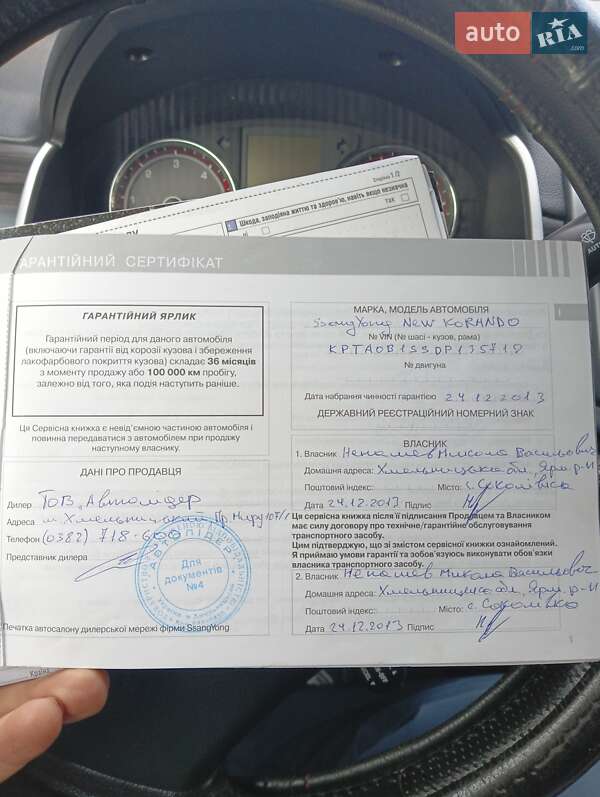 auto RIA .com
Сторінка 1/2
Шкода, заподіяна життю та здоров'ю, навіть якщо незначна
ні
так
АРАНТІЙНИЙ СЕРТИФІКАТ
ГАРАНТІЙНИЙ ЯРЛИК
Гарантійний період для даного автомобіля
(включаючи гарантії від корозії кузова і збереження
лакофарбового покриття кузова) складає 36 місяців
з моменту продажу або 100 000 км пробігу,
залежно від того, яка подія наступить раніше.
Ця Сервісна книжка є невід'ємною частиною автомобіля і
повинна передаватися з автомобілем при продажу
наступному власнику.
ДАНІ ПРО ПРОДАВЦЯ
Дилер ТОВ „Автолідер
Адреса м. Хмельницький, Пр. Миру 107/1
Телефон (0382) 718-600
Представник дилера
АВТОЛІДЕР
Для
документів
№4
Печатка автосалону дилерської мережі фірми SsangYong
МАРКА, МОДЕЛЬ АВТОМОБІЛЯ
SsangYong New KORANDO
№ VIN (№ шасі - кузов, рама)
KPTA0B1SSDP135718
№ двигуна
Дата набрання чинності гарантією 24.12.2013
ДЕРЖАВНИЙ РЕЄСТРАЦІЙНИЙ НОМЕРНИЙ ЗНАК
ВЛАСНИК
1. Власник Микола Васильович
Домашня адреса: Хмельницька обл, Ярм. р-н
Поштовий індекс: Місто: с.
Дата 24.12.2013 Підпис
Ця сервісна книжка після її підписання Продавцем та Власником
має силу договору про технічне/гарантійне обслуговування
транспортного засобу.
Цим підтверджую, що зі змістом сервісної книжки ознайомлений.
Я приймаю умови гарантії та зобов'язуюсь виконувати обов'язки
власника транспортного засобу.
2. Власник Микола Васильович
Домашня адреса: Хмельницька обл, Ярм. р-н
Поштовий індекс: Місто: с.
Дата 24.12.2013 Підпис
Країна